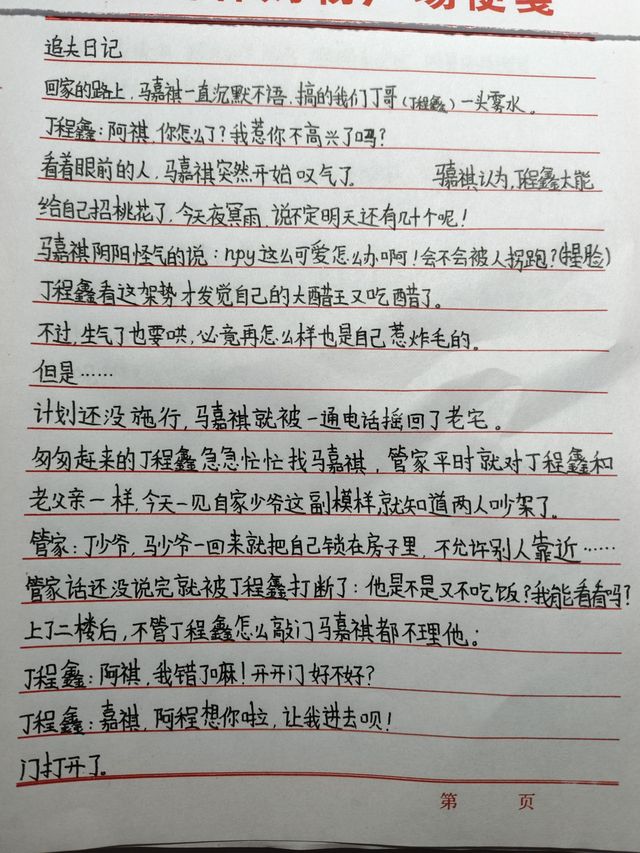 场便笺
追夫日记
回家的路上,马嘉祺一直沉默不语,搞的我们丁哥(丁程鑫)一头雾水。
丁程鑫:阿祺,你怎么了?我惹你不高兴了吗?
看着眼前的人,马嘉祺突然开始叹气了。 马嘉祺认为,丁程鑫太能
给自己招桃花了,今天夜冥雨,说不定明天还有几十个呢!
马嘉祺阴阳怪气的说:npy这么可爱怎么办啊!会不会被人拐跑?(捏脸)
丁程鑫看这架势才发觉自己的大醋王又吃醋了。
不过,生气了也要哄,必竟再怎么样也是自己惹炸毛的。
但是……
计划还没施行,马嘉祺就被一通电话摇回了老宅。
匆匆赶来的丁程鑫急急忙忙找马嘉祺,管家平时就对丁程鑫和
老父亲一样,今天一见自家少爷这副模样,就知道两人吵架了。
管家:丁少爷,马少爷一回来就把自己锁在房子里,不允许别人靠近……
管家话还没说完就被丁程鑫打断了:他是不是又不吃饭?我能看看吗?
上了二楼后,不管丁程鑫怎么敲门马嘉祺都不理他:
丁程鑫:阿祺,我错了嘛!开开门好不好?
丁程鑫:嘉祺,阿程想你啦,让我进去呗!
门打开了。
第 页